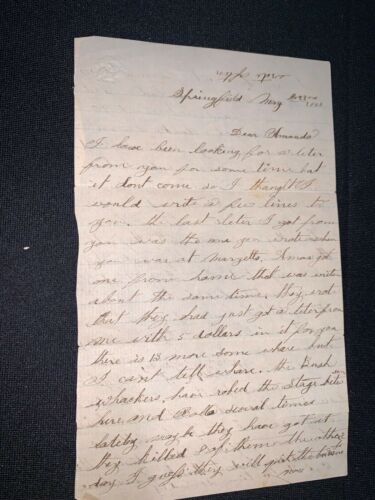 Springfield May
Dear Amanda
I have been looking for a leter
from you for some time but
it dont come so I thought I
would write a few lines to
you. the last leter I got from
you was the one you wrote when
you was at I was got
one from home that was writen
about the same time they wrot
that they had just got a leter from
me with 5 dollars in it for you
there is 13 more some whare but
I cant tell whare. the Bush
whackers have robed the Stage betw
here and Rolla several times
lately maybe they have got it
they killed of them the other
day I guess they will quit the buisness
now